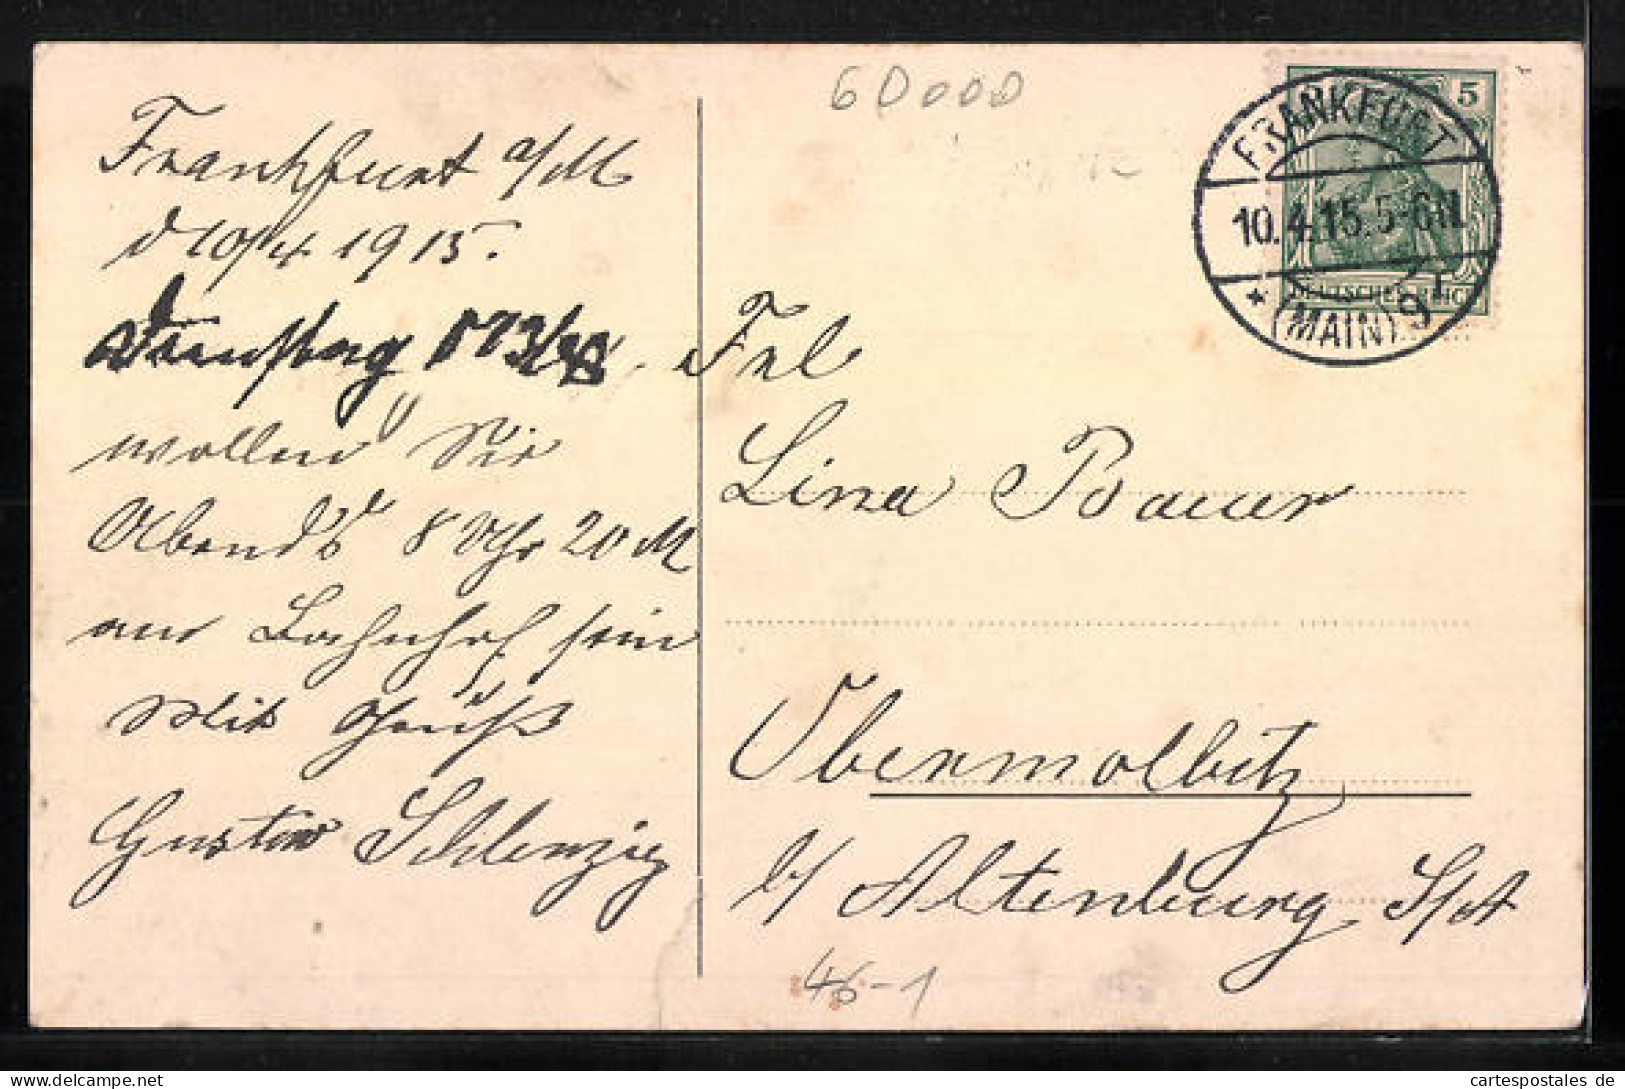 Frankfurt a/M
d 10/4 1915.
wollen Sie
Abends 8 Uhr 20 M
am Bahnhof sein
Mit Gruß
Gustav Schlenzig
60000
5
FRANKFURT
10.4.15.5-6N.
* (MAIN) 9
DEUTSCHES REICH
Frl
Lina Bauer
Obermolbitz
b/ Altenburg S/A
46-1
cartespostales de